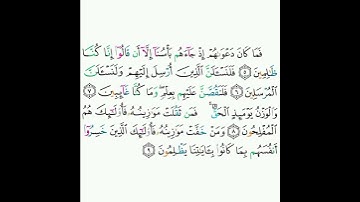 فَمَا كَانَ دَعْوَىٰهُمْ إِذْ جَآءَهُم بَأْسُنَآ إِلَّآ أَن قَالُوٓا۟ إِنَّا كُنَّا
ظَـٰلِمِينَ ۝٥ فَلَنَسْـَٔلَنَّ ٱلَّذِينَ أُرْسِلَ إِلَيْهِمْ وَلَنَسْـَٔلَنَّ
ٱلْمُرْسَلِينَ ۝٦ فَلَنَقُصَّنَّ عَلَيْهِم بِعِلْمٍ ۖ وَمَا كُنَّا غَآئِبِينَ ۝٧
وَٱلْوَزْنُ يَوْمَئِذٍ ٱلْحَقُّ ۚ فَمَن ثَقُلَتْ مَوَٰزِينُهُۥ فَأُو۟لَـٰٓئِكَ هُمُ
ٱلْمُفْلِحُونَ ۝٨ وَمَنْ خَفَّتْ مَوَٰزِينُهُۥ فَأُو۟لَـٰٓئِكَ ٱلَّذِينَ خَسِرُوٓا۟
أَنفُسَهُم بِمَا كَانُوا۟ بِـَٔايَـٰتِنَا يَظْلِمُونَ ۝٩